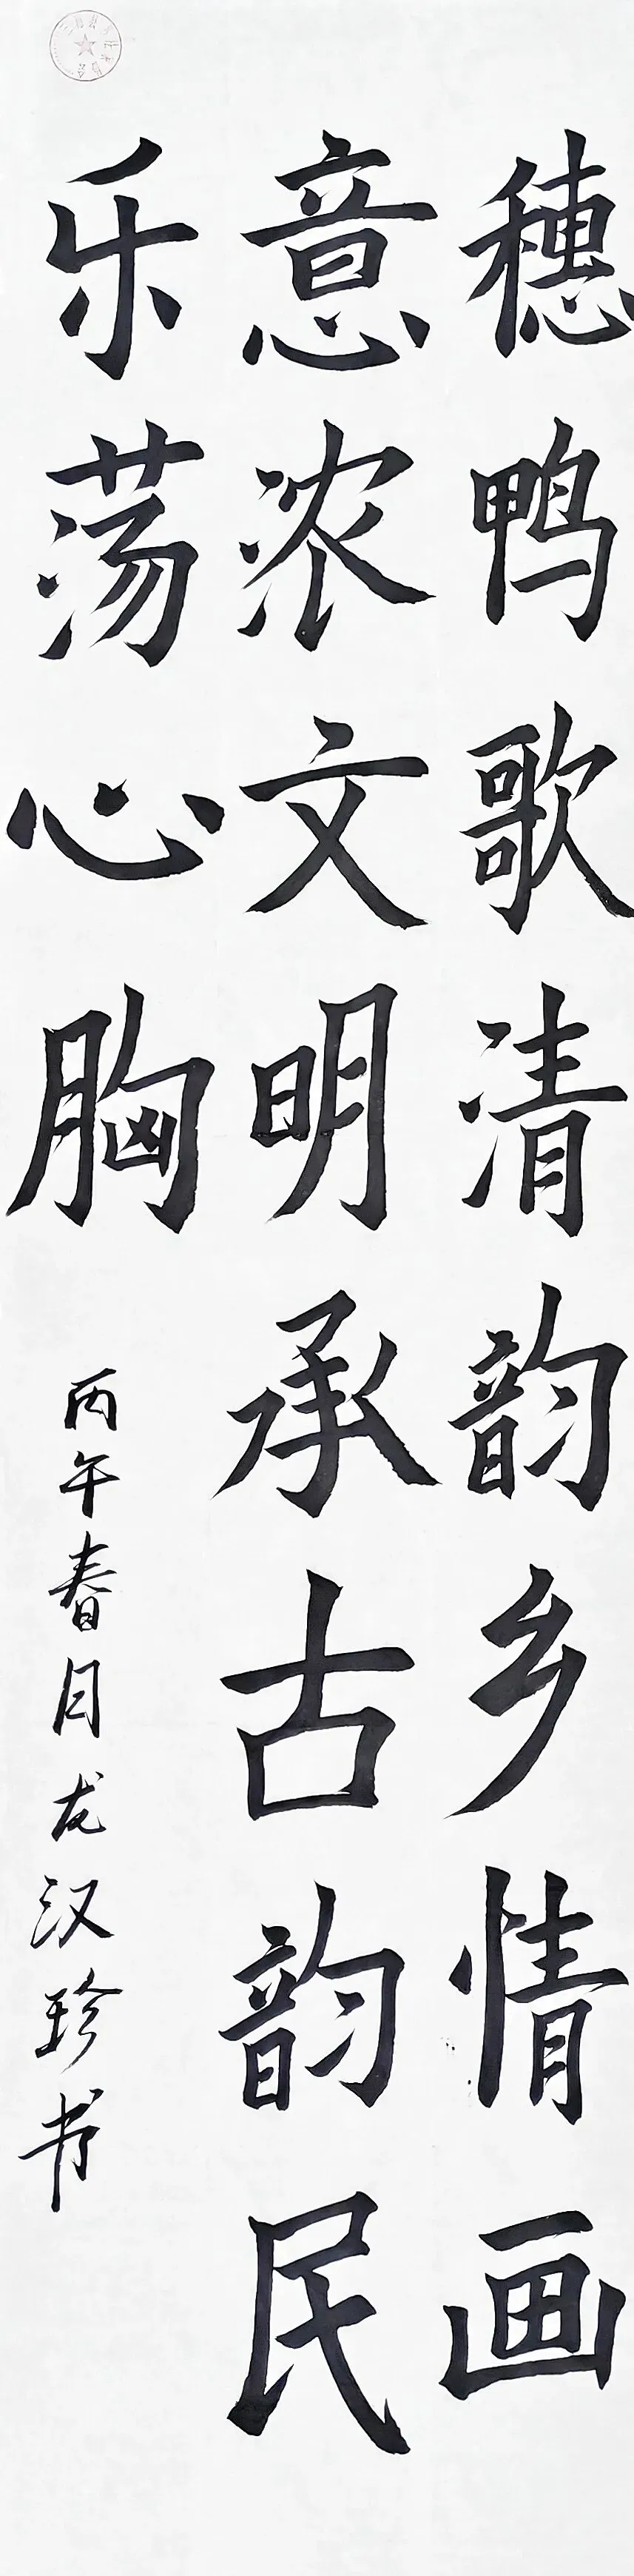 穗鸭歌清韵乡情画
意浓文明承古韵民
乐荡心胸
丙午春月龙汉珍书